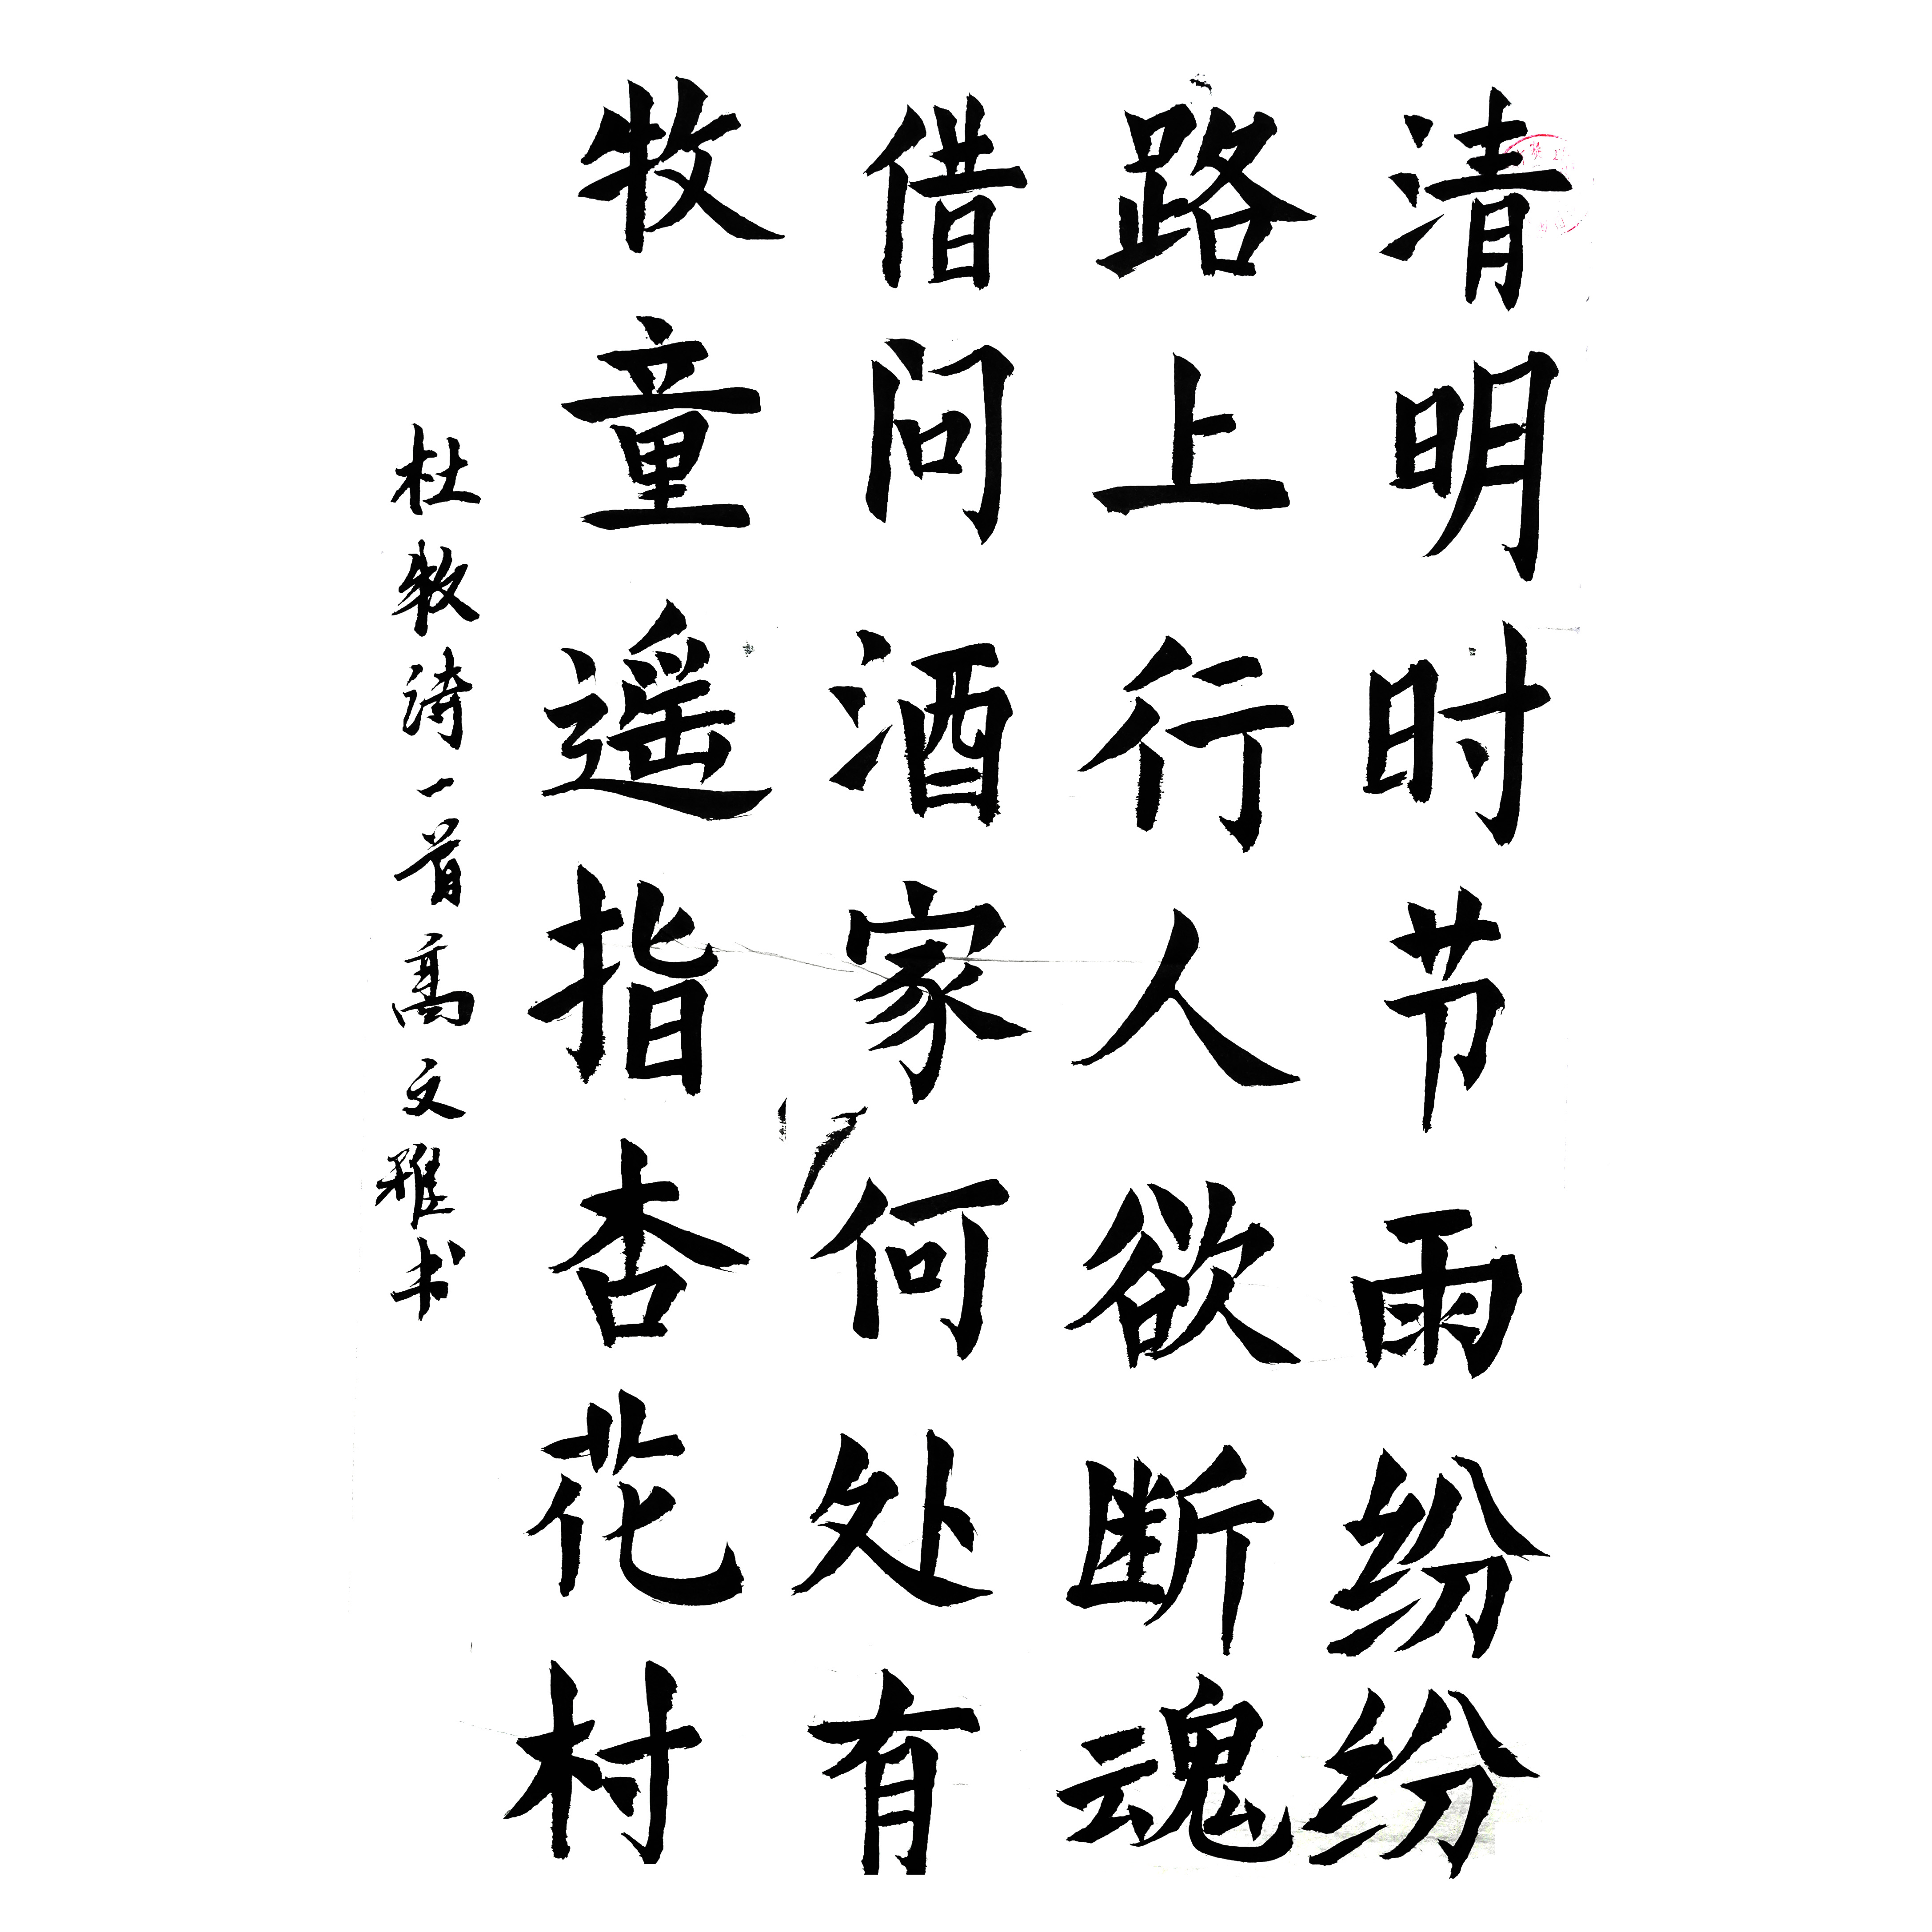 清明时节雨纷纷
路上行人欲断魂
借问酒家何处有
牧童遥指杏花村
杜牧诗一首 高文雅书